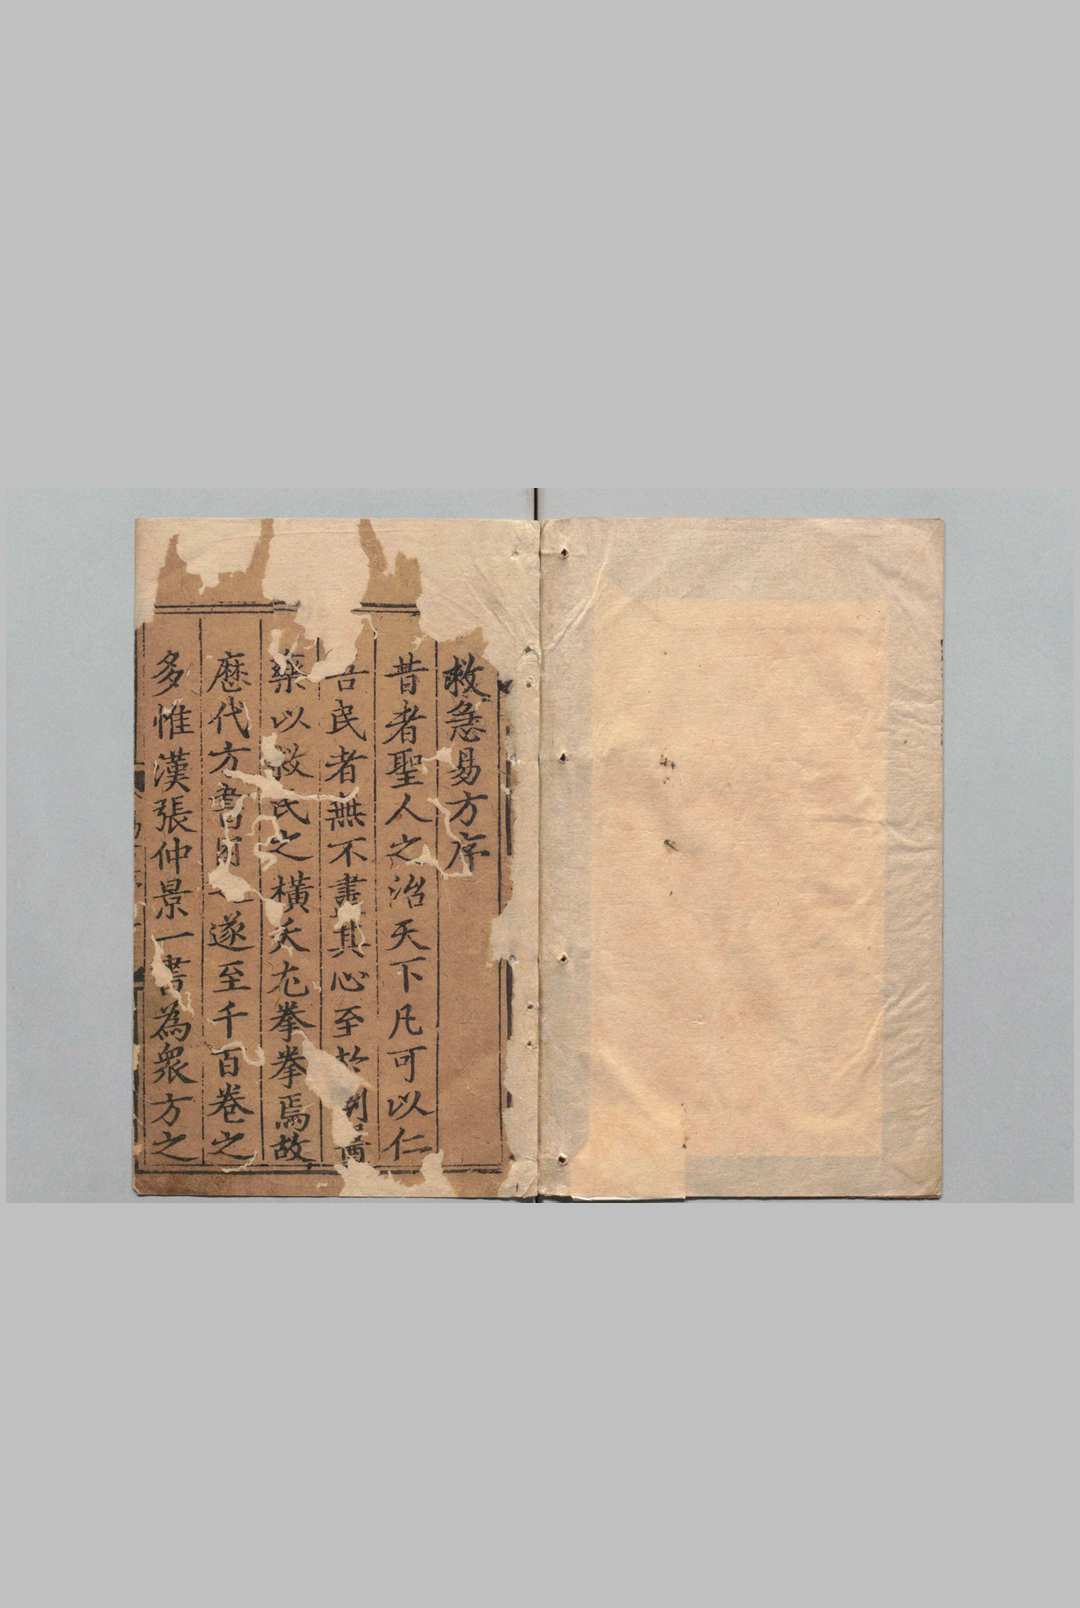 救急易方序
昔者聖人之治天下凡可以仁
吾民者無不盡其心至於
藥以救民之橫夭尤拳拳焉故
歷代方書遂至千百卷之
多惟漢張仲景一書為衆方之